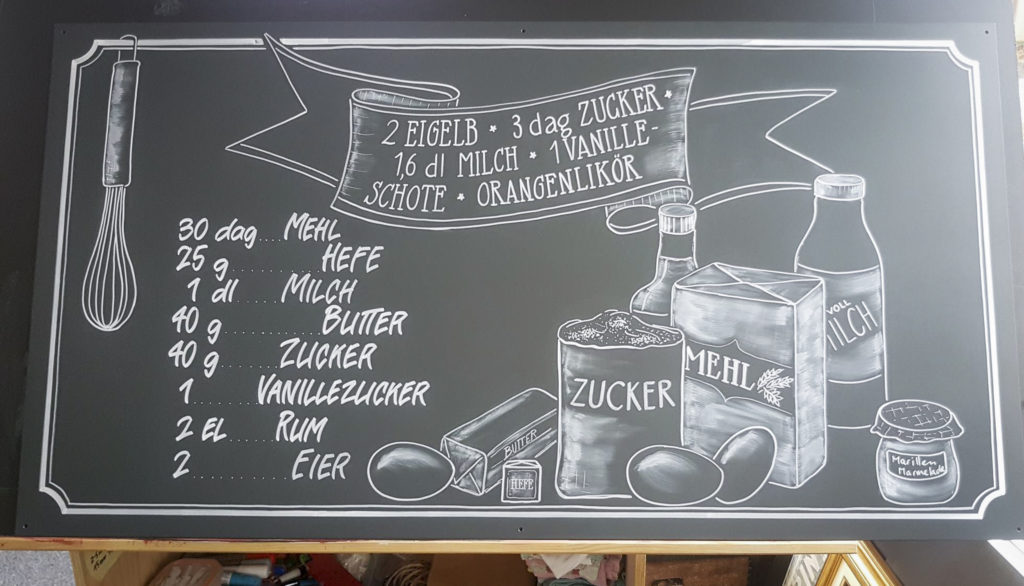 2 EIGELB * 3 dag ZUCKER *
1,6 dl MILCH * 1 VANILLE-
SCHOTE * ORANGENLIKÖR
30 dag....MEHL
25 g..........HEFE
1 dl......MILCH
40 g..........BUTTER
40 g......ZUCKER
1.......VANILLEZUCKER
2 EL.....RUM
2............EIER
VOLL
MILCH
MEHL
ZUCKER
BUTTER
HEFE
Marillen
Marmelade